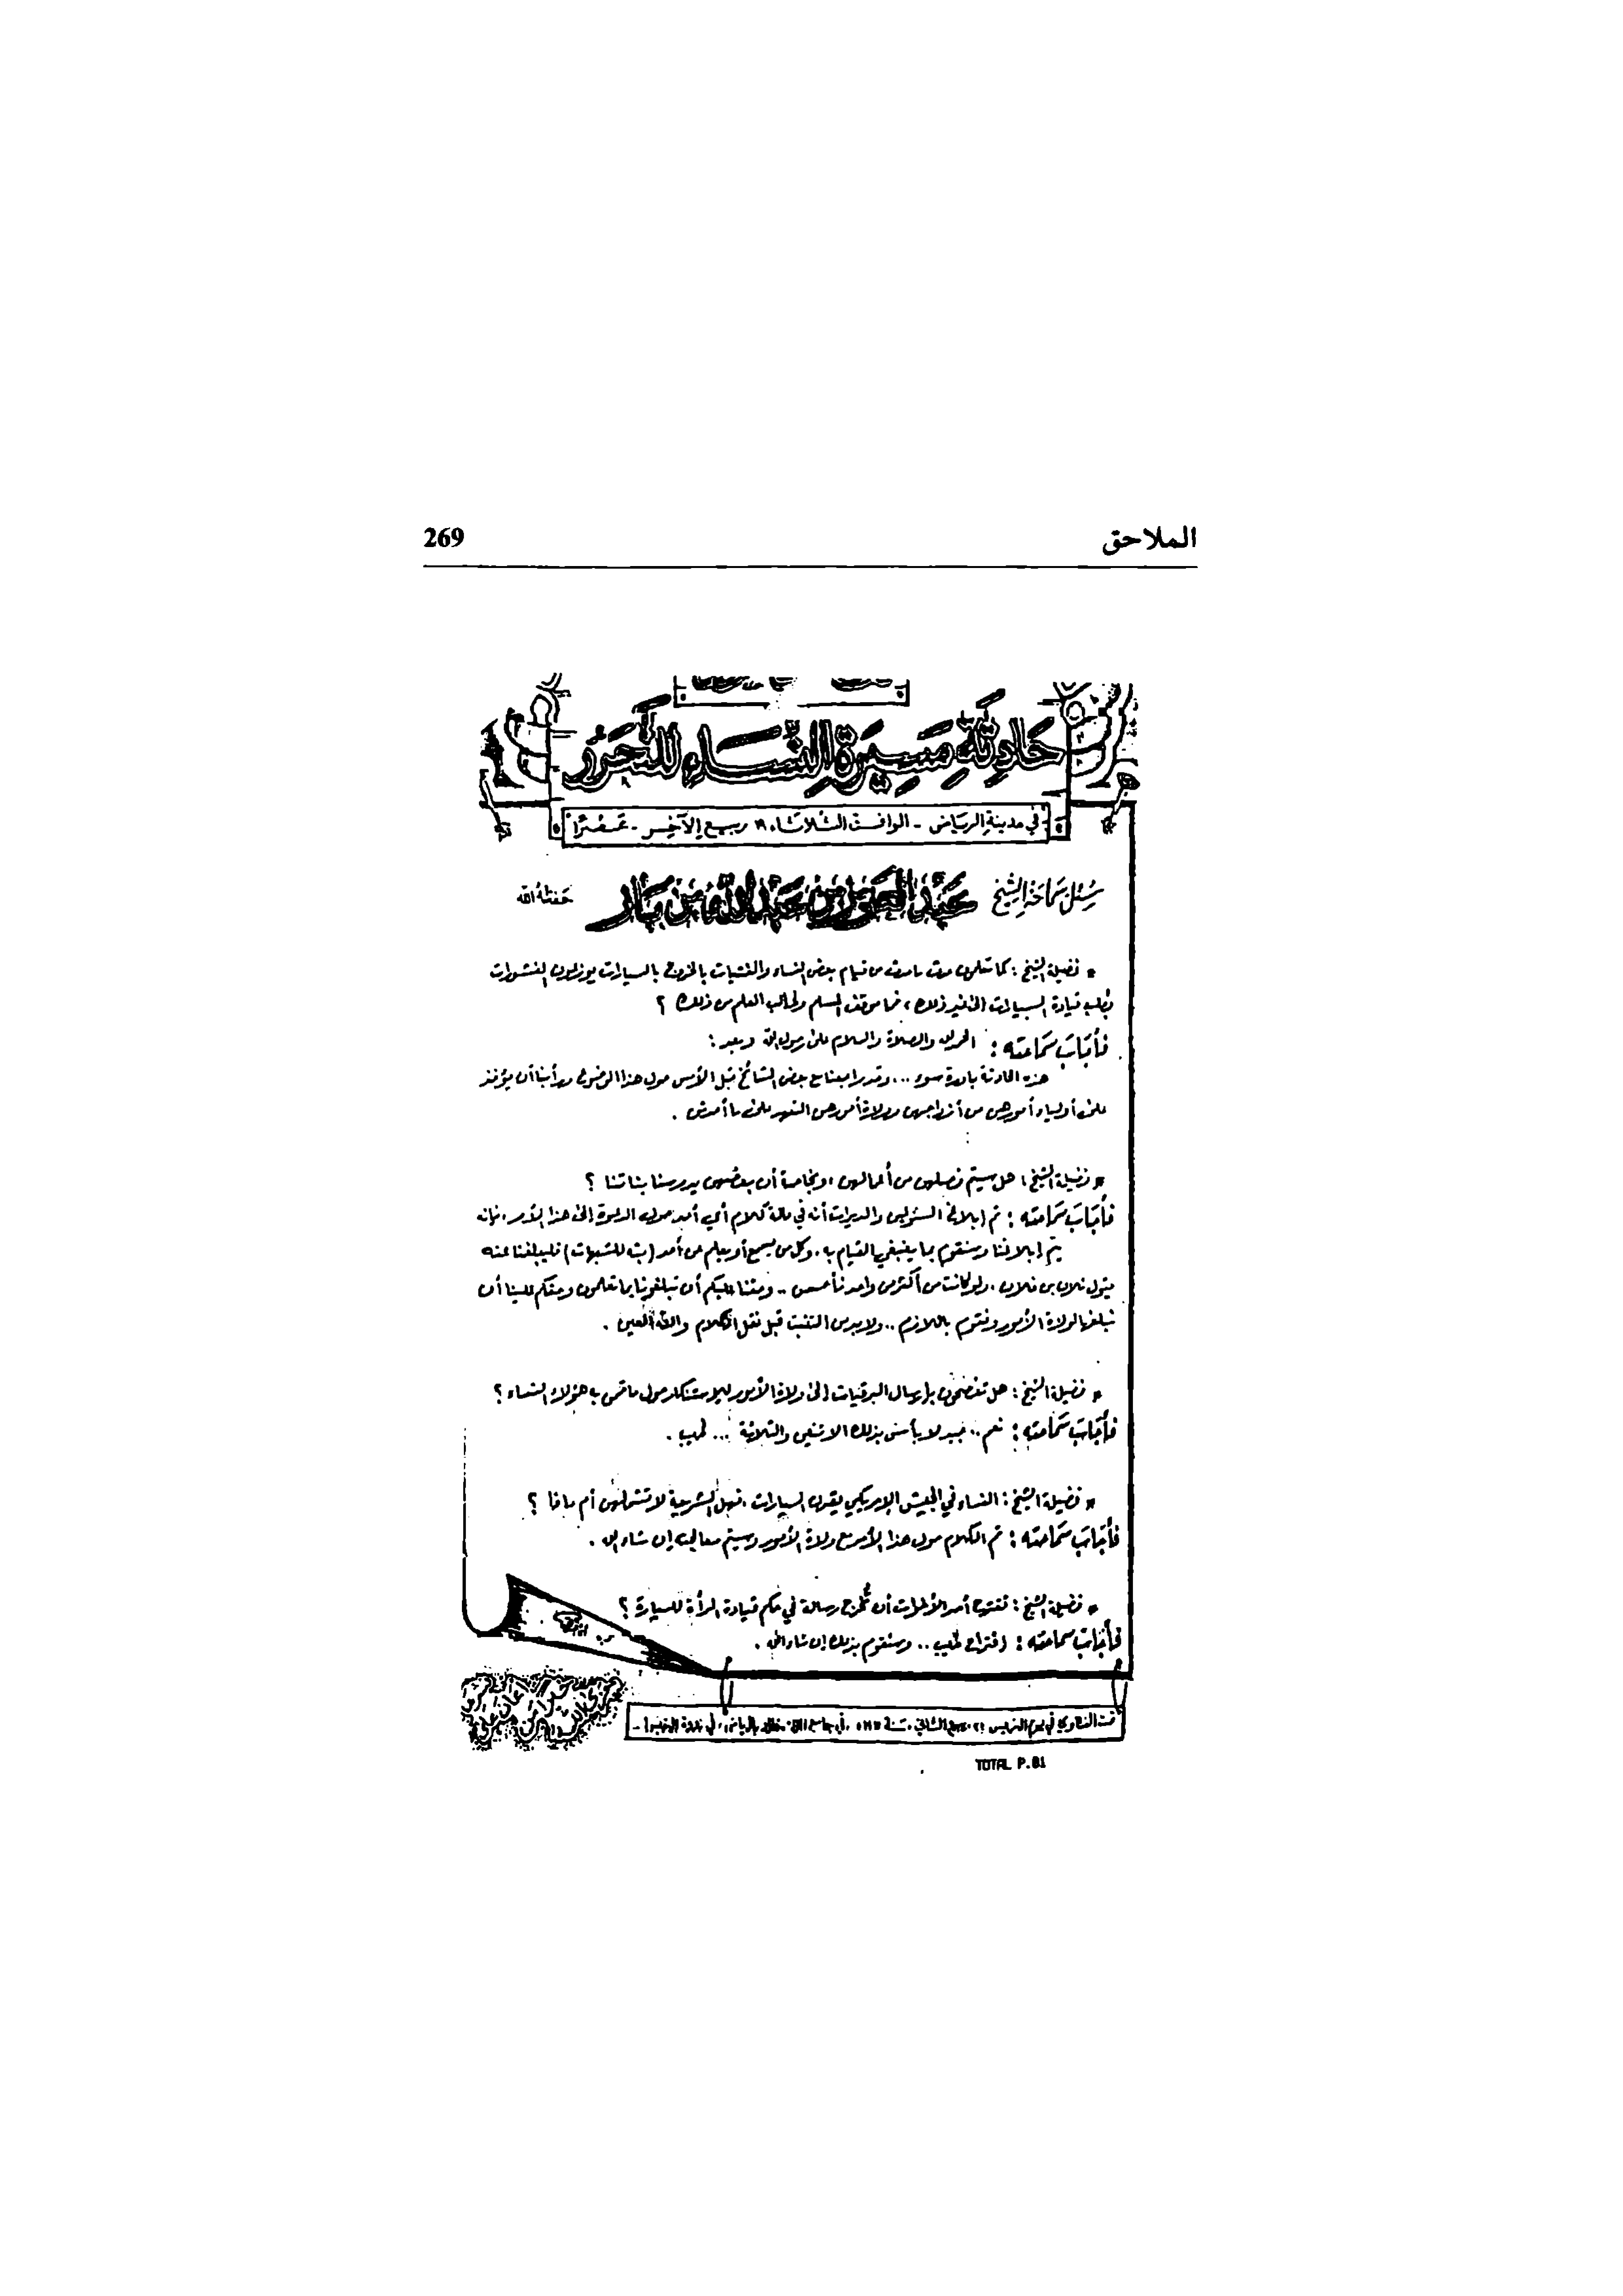 الملاحق
269
حَادِثَة مَسِيرَة النِّسَاءِ للتَّحَرُّر
في مدينة الرياض - الموافق الثلاثاء ١٩ ربيع الآخر -
سُئل سماحة الشيخ عبد العزيز بن عبد الله بن باز حفظه الله
* فضيلة الشيخ : كما تعلمون حدث ما حدث من قيام بعض النساء والفتيات بالخروج بالسيارات يوزعون المنشورات
بطلب قيادة السيارات الى غير ذلك ، فما موقف المسلم وطالب العلم من ذلك ؟
فأجاب سماحته : الحمد لله والصلاة والسلام على رسول الله وبعد :
هذه الحادثة بادرة سوء ... وقد اجتمعنا مع بعض المشائخ قبل الأمس حول هذا الموضوع ورأينا أن يؤخذ
على أولياء أمورهن من أزواجهن وولاة أمورهن التعهد على ما أحدثن .
* فضيلة الشيخ : هل سيتم فصلهن من أعمالهن ، وبخاصة أن بعضهن يدرسن بناتنا ؟
فأجاب سماحته : تم إبلاغ المسئولين والمديرات أنه في حالة كلام أي أحد حول الدعوة الى هذا الأمر ، فإنه
يتم إبلاغنا وسنقوم بما ينبغي القيام به . وكل من يسمع أو يعلم عن أحد ( بث للشبهات ) فليبلغنا عنه
يقول فلان بن فلان ، ولو كانت من أكثر من واحد فأحسن .. وحقنا عليكم أن تبلغونا بما تعلمون وحقكم علينا أن
نبلغها لولاة الأمور ونقوم باللازم .. ولا بد من التثبت قبل نقل الكلام والله المعين .
* فضيلة الشيخ : هل تنصحون بإرسال البرقيات الى ولاة الأمور للاستنكار حول ما قمن به هؤلاء النساء ؟
فأجاب سماحته : نعم .. جيد لا بأس بذلك الاثنين والثلاثة ... طيب .
* فضيلة الشيخ : النساء في الجيش الإمريكي يقدن السيارات ، فهل الشريعة لا تشملهن أم ماذا ؟
فأجاب سماحته : تم الكلام حول هذا الأمر مع ولاة الأمور وسيتم معالجته إن شاء الله .
* فضيلة الشيخ : تقترح أحد الأخوات أن تخرج رسالة في حكم قيادة المرأة للسيارة ؟
فأجاب سماحته : اقتراح طيب .. وسنقوم بذلك إن شاء الله .
TOTAL P.01